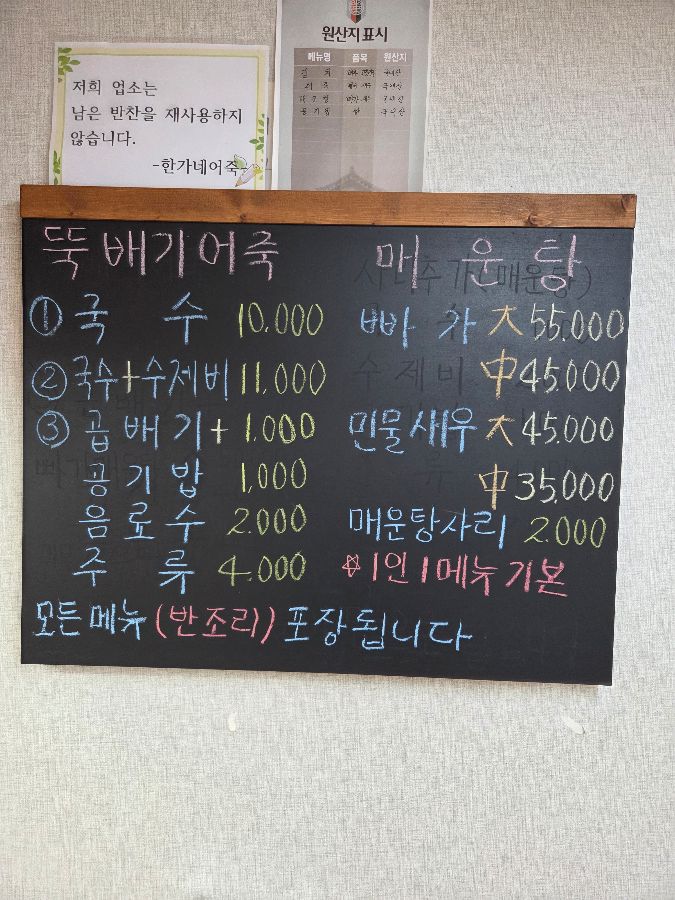 저희 업소는
남은 반찬을 재사용하지
않습니다.
-한가네어죽-
원산지 표시
메뉴명 품목 원산지
김치 국내산
국내산
국내산
공기밥 쌀 국내산
뚝배기어죽
① 국수 10,000
② 국수+수제비 11,000
③ 곱배기+ 1,000
공기밥 1,000
음료수 2,000
주류 4,000
매운탕
빠가 大 55,000
中 45,000
민물새우 大 45,000
中 35,000
매운탕사리 2,000
☆ 1인 1메뉴 기본
모든 메뉴 (반조리) 포장됩니다